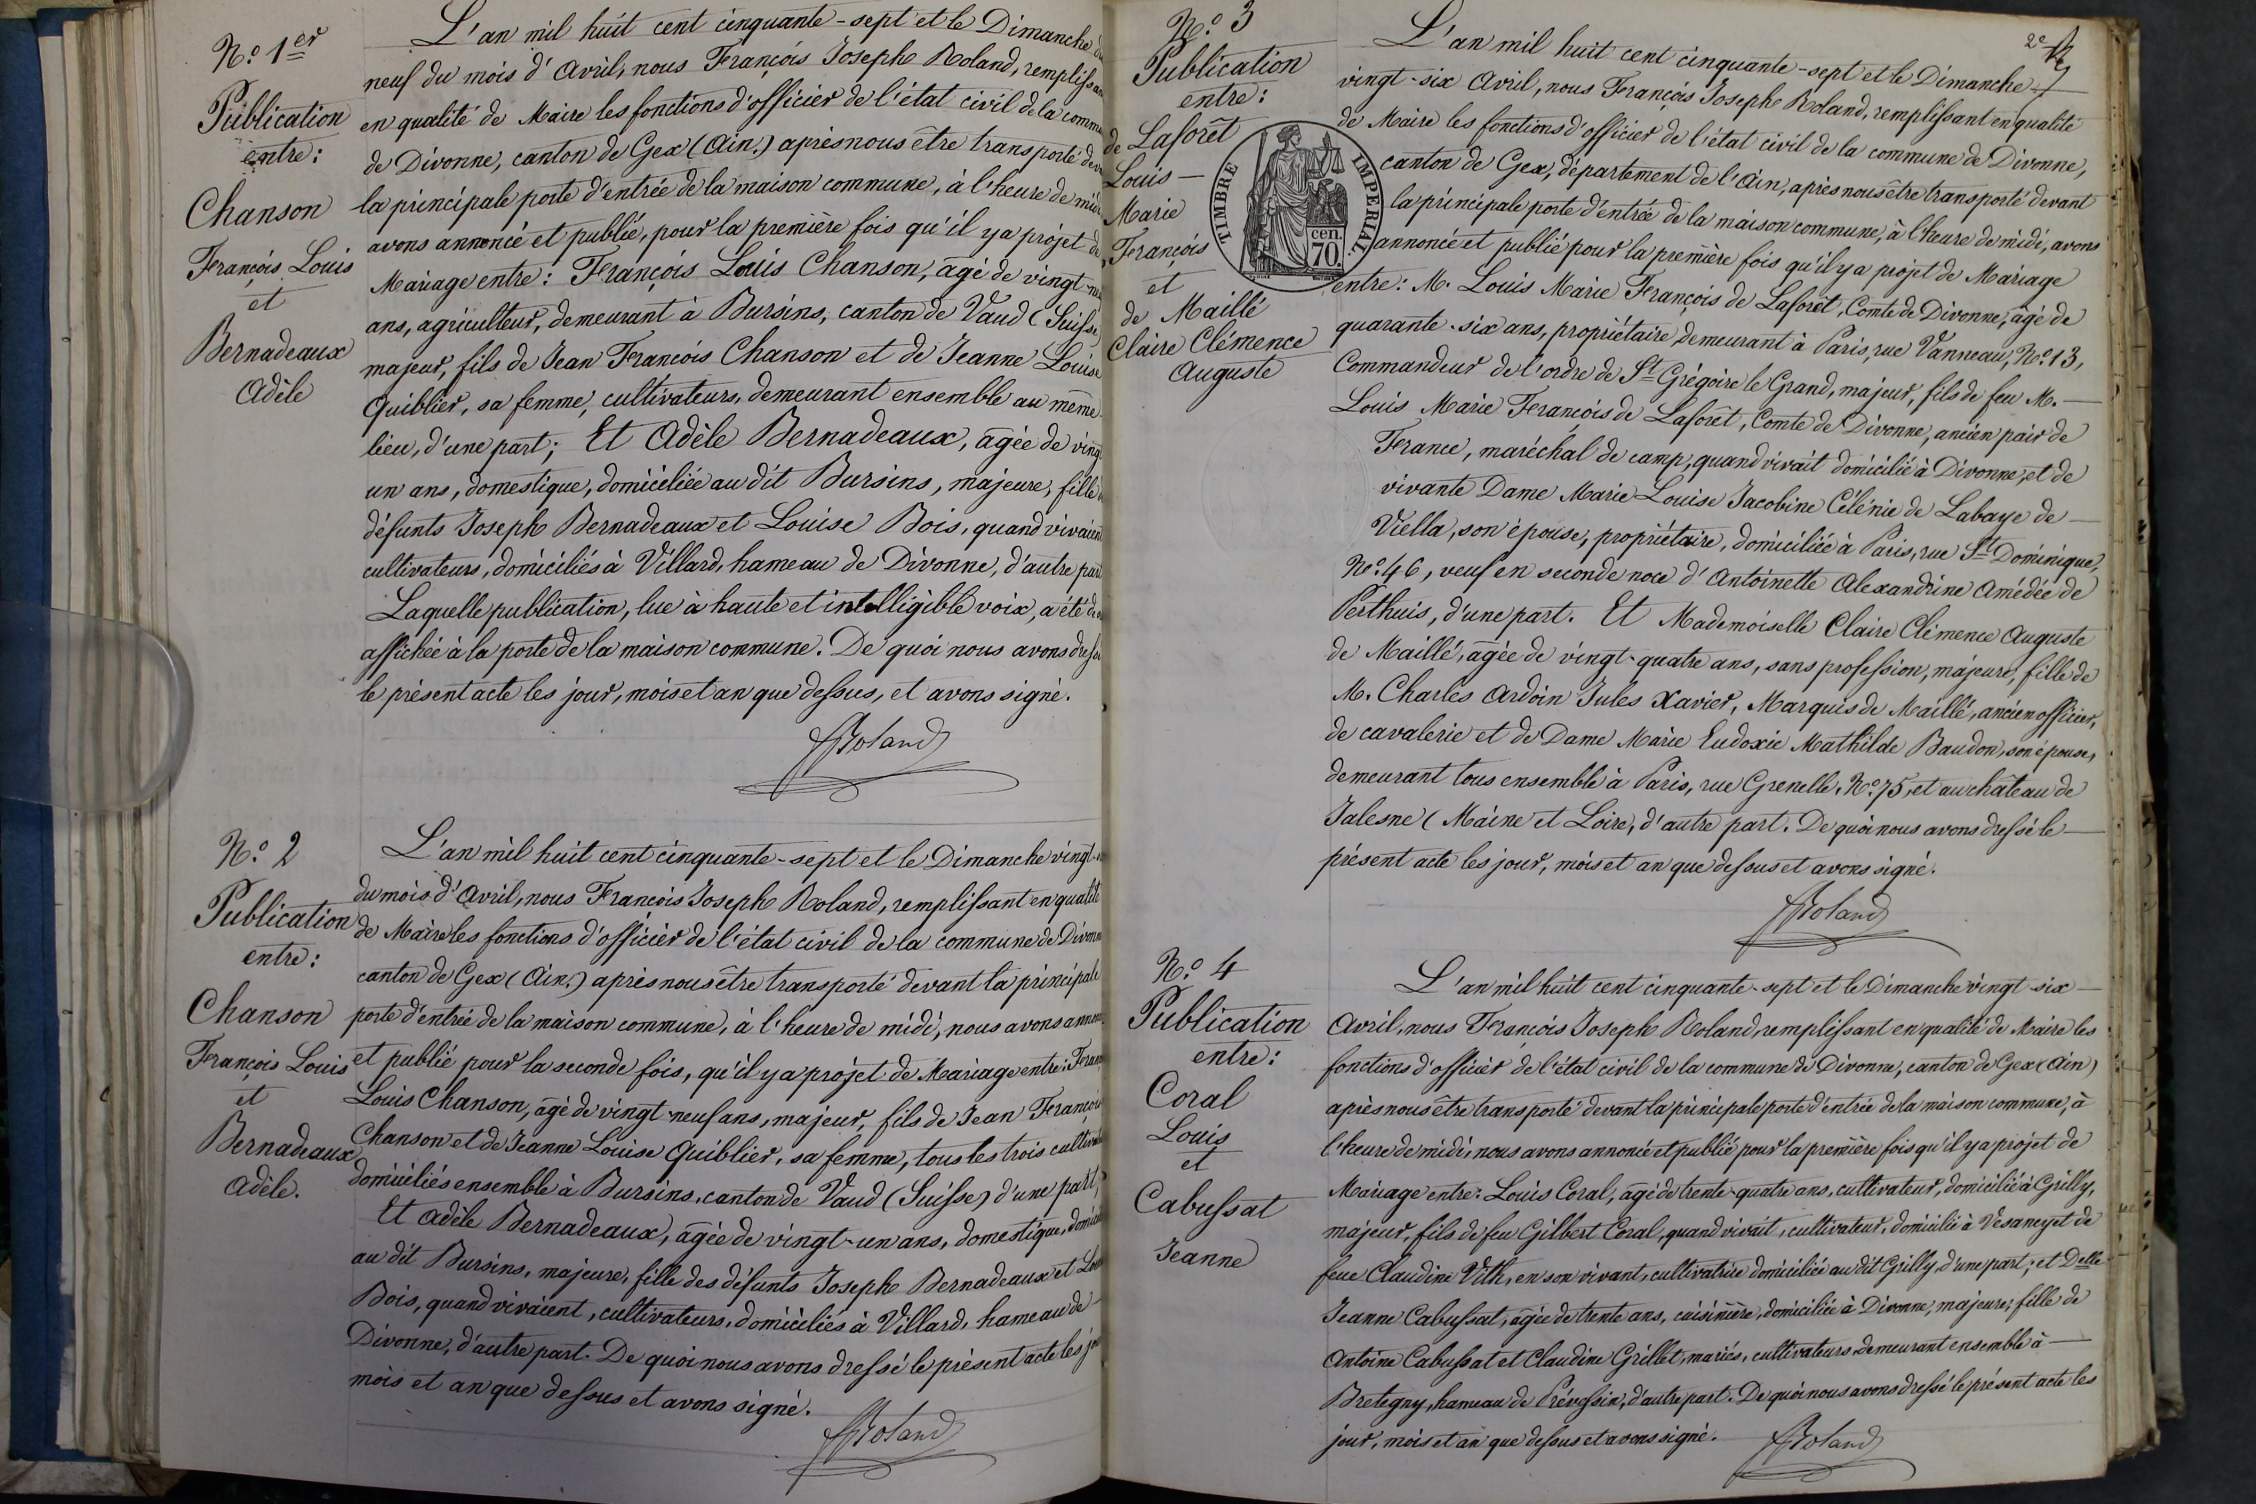 N.º 1er
Publication
entre :
Chanson
François Louis
et
Bernadeaux
Adèle
L'an mil huit cent cinquante-sept et le Dimanche
neuf du mois d'Avril, nous François Joseph Roland, remplissant
en qualité de Maire les fonctions d'officier de l'état civil de la commune
de Divonne, canton de Gex (Ain.) après nous être transporté devant
la principale porte d'entrée de la maison commune, à l'heure de midi,
avons annoncé et publié, pour la première fois qu'il y a projet de
Mariage entre : François Louis Chanson, âgé de vingt-neuf
ans, agriculteur, demeurant à Bursins, canton de Vaud (Suisse,
majeur, fils de Jean François Chanson et de Jeanne Louise
Quiblier, sa femme, cultivateurs, demeurant ensemble au même
lieu, d'une part ; Et Adèle Bernadeaux, âgée de vingt
un ans, domestique, domiciliée au dit Bursins, majeure, fille
défunts Joseph Bernadeaux et Louise Bois, quand vivaient
cultivateurs, domiciliés à Villard, hameau de Divonne, d'autre part
Laquelle publication, lue à haute et intelligible voix, a été de
affichée à la porte de la maison commune. De quoi nous avons dressé
le présent acte les jour, mois et an que dessus, et avons signé.
FRoland
N.º 2
Publication
entre :
Chanson
François Louis
et
Bernadeaux
Adèle.
L'an mil huit cent cinquante-sept et le Dimanche vingt-
du mois d'Avril, nous François Joseph Roland, remplissant en qualité
de Maire les fonctions d'officier de l'état civil de la commune de Divonne
canton de Gex (Ain.) après nous être transporté devant la principale
porte d'entrée de la maison commune, à l'heure de midi, nous avons annoncé
et publié pour la seconde fois, qu'il y a projet de Mariage entre : François
Louis Chanson, âgé de vingt-neuf ans, majeur, fils de Jean François
Chanson et de Jeanne Louise Quiblier, sa femme, tous les trois cultivateurs
domiciliés ensemble à Bursins, canton de Vaud (Suisse) d'une part,
Et Adèle Bernadeaux, âgée de vingt-un ans, domestique, domiciliée
au dit Bursins, majeure, fille des défunts Joseph Bernadeaux et Louise
Bois, quand vivaient, cultivateurs, domiciliés à Villard, hameau de
Divonne, d'autre part. De quoi nous avons dressé le présent acte les jour
mois et an que dessus et avons signé.
FRoland
2e
N.º 3
Publication
entre :
de Laforêt
Louis
Marie
François
et
de Maillé
Claire Clémence
Auguste
TIMBRE IMPERIAL.
cen.
70.
L'an mil huit cent cinquante-sept et le Dimanche
vingt-six Avril, nous François Joseph Roland, remplissant en qualité
de Maire les fonctions d'officier de l'état civil de la commune de Divonne,
canton de Gex, département de l'Ain, après nous être transporté devant
la principale porte d'entrée de la maison commune, à l'heure de midi, avons
annoncé et publié pour la première fois qu'il y a projet de Mariage
entre : M. Louis Marie François de Laforêt, Comte de Divonne, âgé de
quarante-six ans, propriétaire demeurant à Paris, rue Vanneau, Nº 13,
Commandeur de l'ordre de St Grégoire le Grand, majeur, fils de feu M.
Louis Marie François de Laforêt, Comte de Divonne, ancien pair de
France, maréchal de camp, quand vivait domicilié à Divonne, et de
vivante Dame Marie Louise Jacobine Célénie de Labaye de
Viella, son épouse, propriétaire, domiciliée à Paris, rue St Dominique,
Nº 46, veuf en seconde noce d'Antoinette Alexandrine Amédée de
Perthuis, d'une part. Et Mademoiselle Claire Clémence Auguste
de Maillé, âgée de vingt-quatre ans, sans profession, majeure, fille de
M. Charles Ardoin Jules Xavier, Marquis de Maillé, ancien officier,
de cavalerie et de Dame Marie Eudoxie Mathilde Baudon, son épouse,
demeurant tous ensemble à Paris, rue Grenelle, Nº 75, et au château de
Jalesne (Maine et Loire, d'autre part. De quoi nous avons dressé le
présent acte les jour, mois et an que dessus et avons signé.
FRoland
N.º 4
Publication
entre :
Coral
Louis
et
Cabussat
Jeanne
L'an mil huit cent cinquante-sept et le Dimanche vingt-six
Avril, nous François Joseph Roland, remplissant en qualité de Maire les
fonctions d'officier de l'état civil de la commune de Divonne, canton de Gex (Ain)
après nous être transporté devant la principale porte d'entrée de la maison commune, à
l'heure de midi, nous avons annoncé et publié pour la première fois qu'il y a projet de
Mariage entre : Louis Coral, âgé de trente-quatre ans, cultivateur, domicilié à Grilly,
majeur, fils de feu Gilbert Coral, quand vivait, cultivateur, domicilié à Vesancy et de
feue Claudine Vith, en son vivant, cultivatrice domiciliée au dit Grilly, d'une part ; et Delle
Jeanne Cabussat, âgée de trente ans, cuisinière, domiciliée à Divonne, majeure, fille de
Antoine Cabussat et Claudine Grillet, mariés, cultivateurs demeurant ensemble à
Bretegny, hameau de Prévessin, d'autre part. De quoi nous avons dressé le présent acte les
jour, mois et an que dessus et avons signé.
FRoland